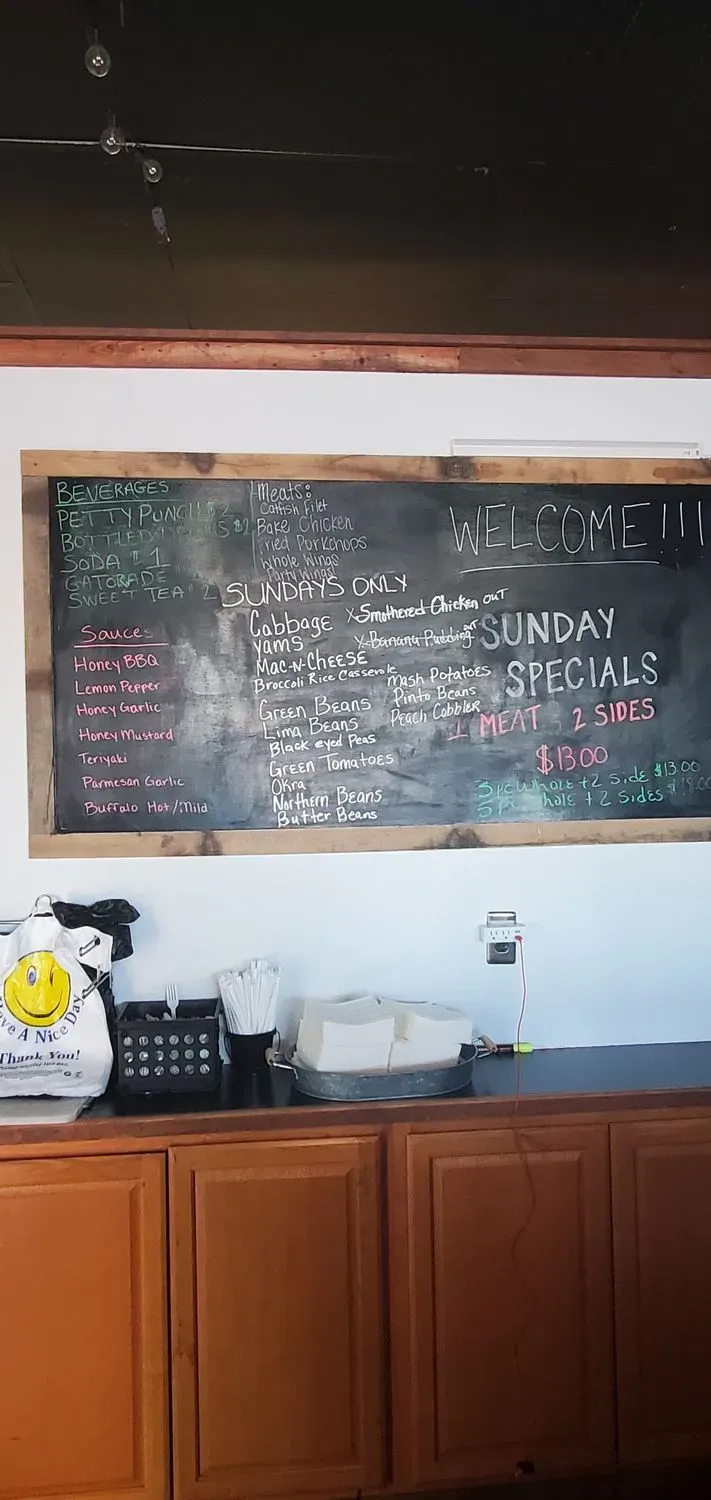 BEVERAGES
PETTY PUNCH $2
BOTTLED $2
SODA $1
GATORADE
SWEET TEA $2
Sauces
Honey BBQ
Lemon Pepper
Honey Garlic
Honey Mustard
Teriyaki
Parmesan Garlic
Buffalo Hot/Mild
Meats:
Catfish Filet
Bake Chicken
Fried Porkchops
Whole Wings
Party Wings
SUNDAYS ONLY
Cabbage
Yams
Mac-N-Cheese
Broccoli Rice Casserole
Green Beans
Lima Beans
Black eyed Peas
Green Tomatoes
Okra
Northern Beans
Butter Beans
X Smothered Chicken OUT
X Banana Pudding OUT
Mash Potatoes
Pinto Beans
Peach Cobbler
WELCOME!!!
SUNDAY
SPECIALS
1 MEAT 2 SIDES
$13.00
3pc Whole + 2 Side $13.00
5pc Whole + 2 Sides
Have A Nice Day
Thank You!